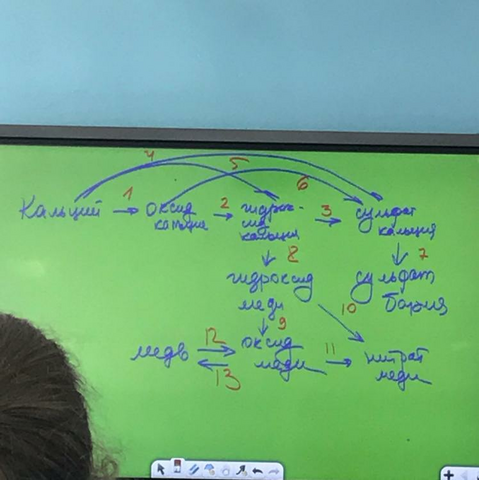 4 5 6
1 2 3
Кальций → оксид → гидрок- → сульфат
кальция сид кальция
кальция
8 7
гидроксид сульфат
меди бария
9 10
12 11
медь оксид → нитрат
меди меди
13